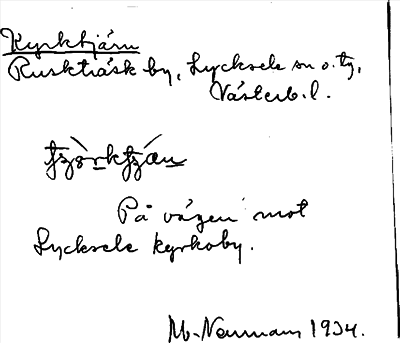 Kyrktjärn
Ruskträsk by, Lycksele sn o. tg,
Västerb. l.
På vägen mot
Lycksele kyrkoby.
M. Neumann 1934.